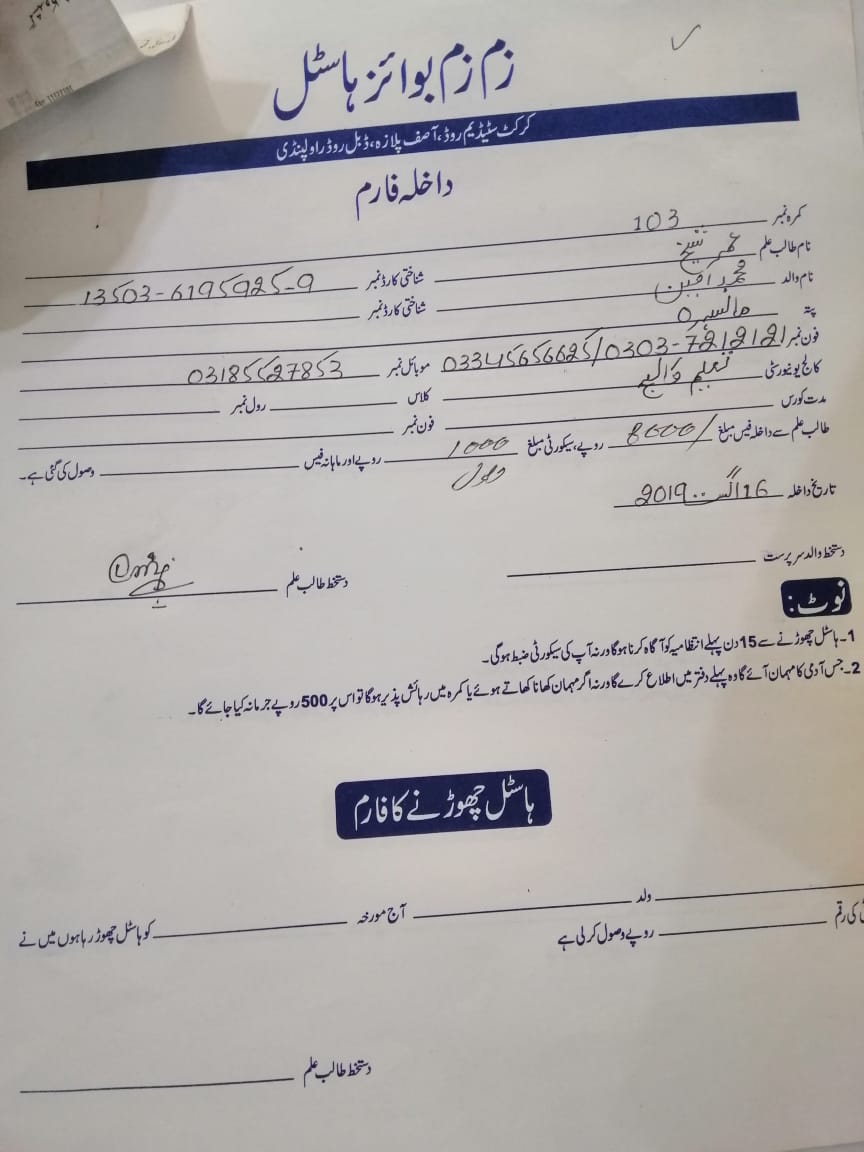 زم زم بوائز ہاسٹل
کرکٹ سٹیڈیم روڈ، آصف پلازہ، ڈبل روڈ راولپنڈی
داخلہ فارم
کمرہ نمبر 103
نام طالب علم عمر شیخ
نام والد محمد شناختی کارڈ نمبر 13503-6195925-9
پتہ مانسہرہ شناختی کارڈ نمبر
فون نمبر 03345656625/0303-7212121 موبائل نمبر 03185527853
کالج یونیورسٹی تعلیم کلاس رول نمبر
مدت کورس فون نمبر
طالب علم سے داخلہ فیس مبلغ 8000/ روپے، سیکورٹی مبلغ 1000 روپے اور ماہانہ فیس وصول کی گئی ہے۔
وصول
تاریخ داخلہ 16 اگست 2019
دستخط والد سرپرست دستخط طالب علم
نوٹ:
1- ہاسٹل چھوڑنے سے 15 دن پہلے انتظامیہ کو آگاہ کرنا ہوگا ورنہ آپ کی سیکورٹی ضبط ہوگی۔
2- جس آدمی کا مہمان آئے گا وہ پہلے دفتر میں اطلاع کرے گا ورنہ اگر مہمان کھانا کھاتے ہوئے یا کمرہ میں رہائش پذیر ہوگا تو اس پر 500 روپے جرمانہ کیا جائے گا۔
ہاسٹل چھوڑنے کا فارم
ولد آج مورخہ کو ہاسٹل چھوڑ رہا ہوں میں نے
کی رقم روپے وصول کر لی ہے
دستخط طالب علم